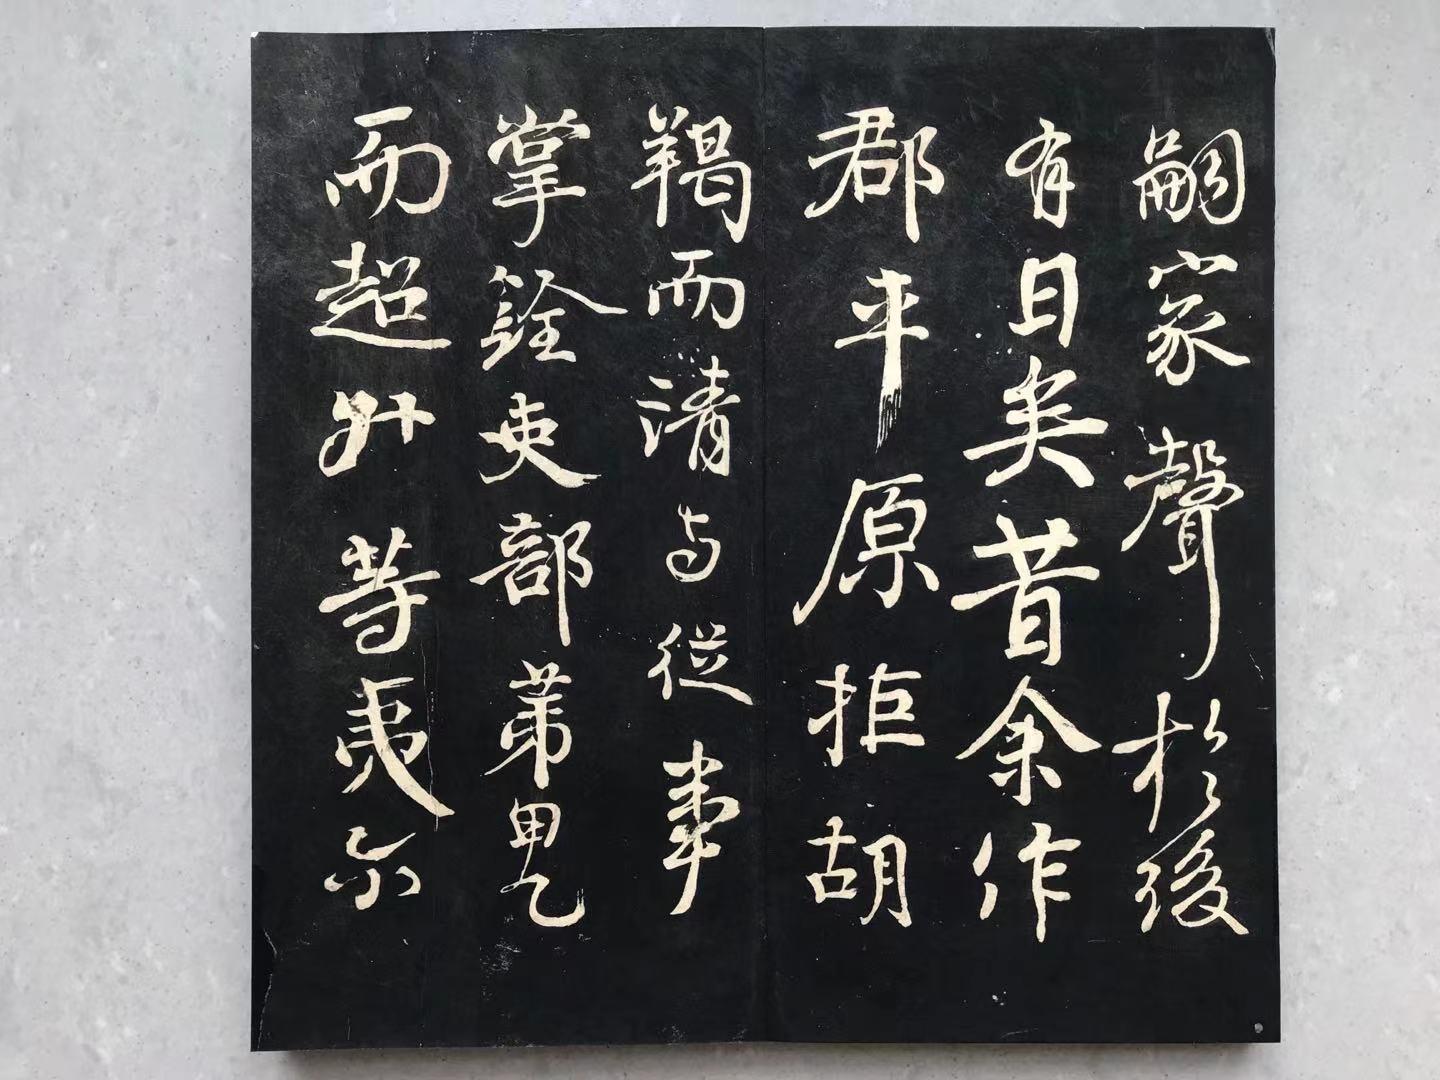 嗣家聲於後
有日矣昔余作
郡平原拒胡
羯而清与從事
掌銓吏部第甲乙
而超升等夷尔